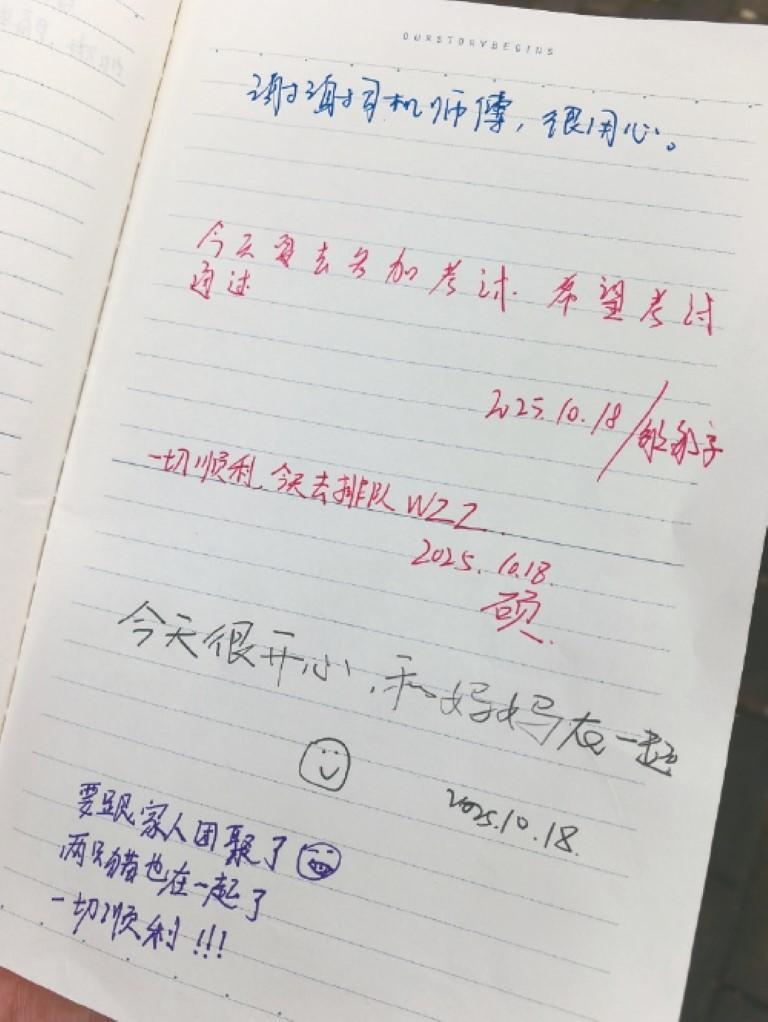 OURSTORYBEGINS
谢谢司机师傅，很用心。
今天要去参加考试.希望考试
通过
2025.10.18/
一切顺利.今天去排队WZZ
2025.10.18.
硕.
今天很开心,和妈妈在一起
2025.10.18.
要跟家人团聚了
两只猫也在一起了
一切顺利!!!